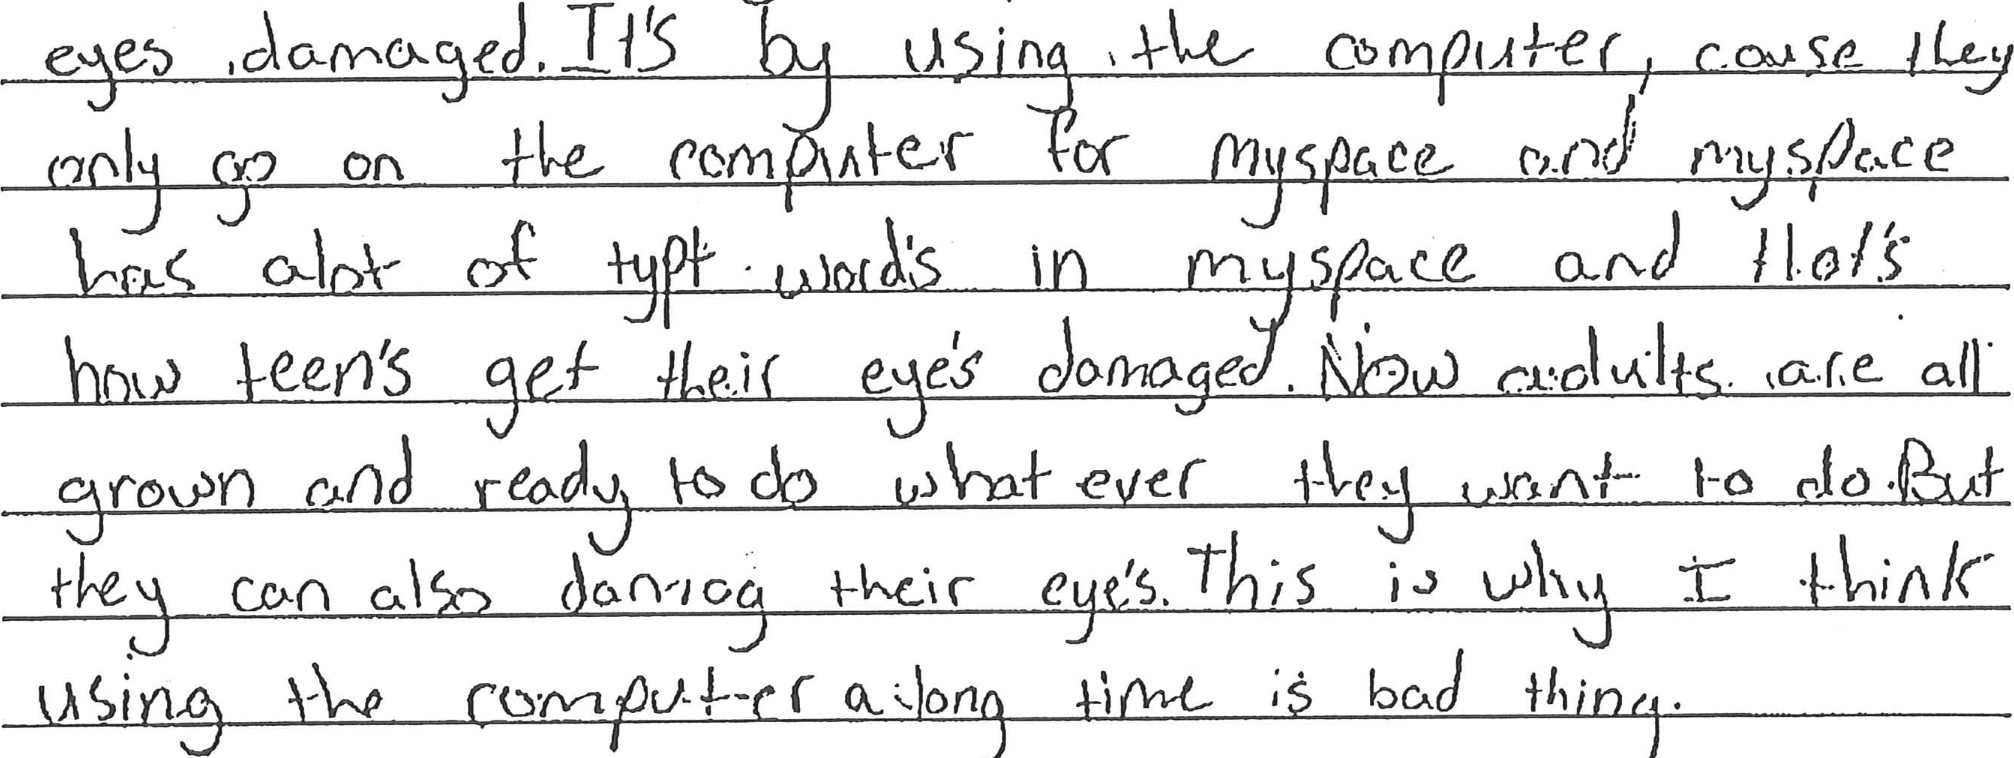 eyes damaged. It's by using the computer, cause they
only go on the computer for myspace and myspace
has alot of typt word's in myspace and that's
how teen's get their eye's damaged. Now adults are all
grown and ready to do what ever they want to do. But
they can also damag their eye's. This is why I think
using the computer a long time is bad thing.